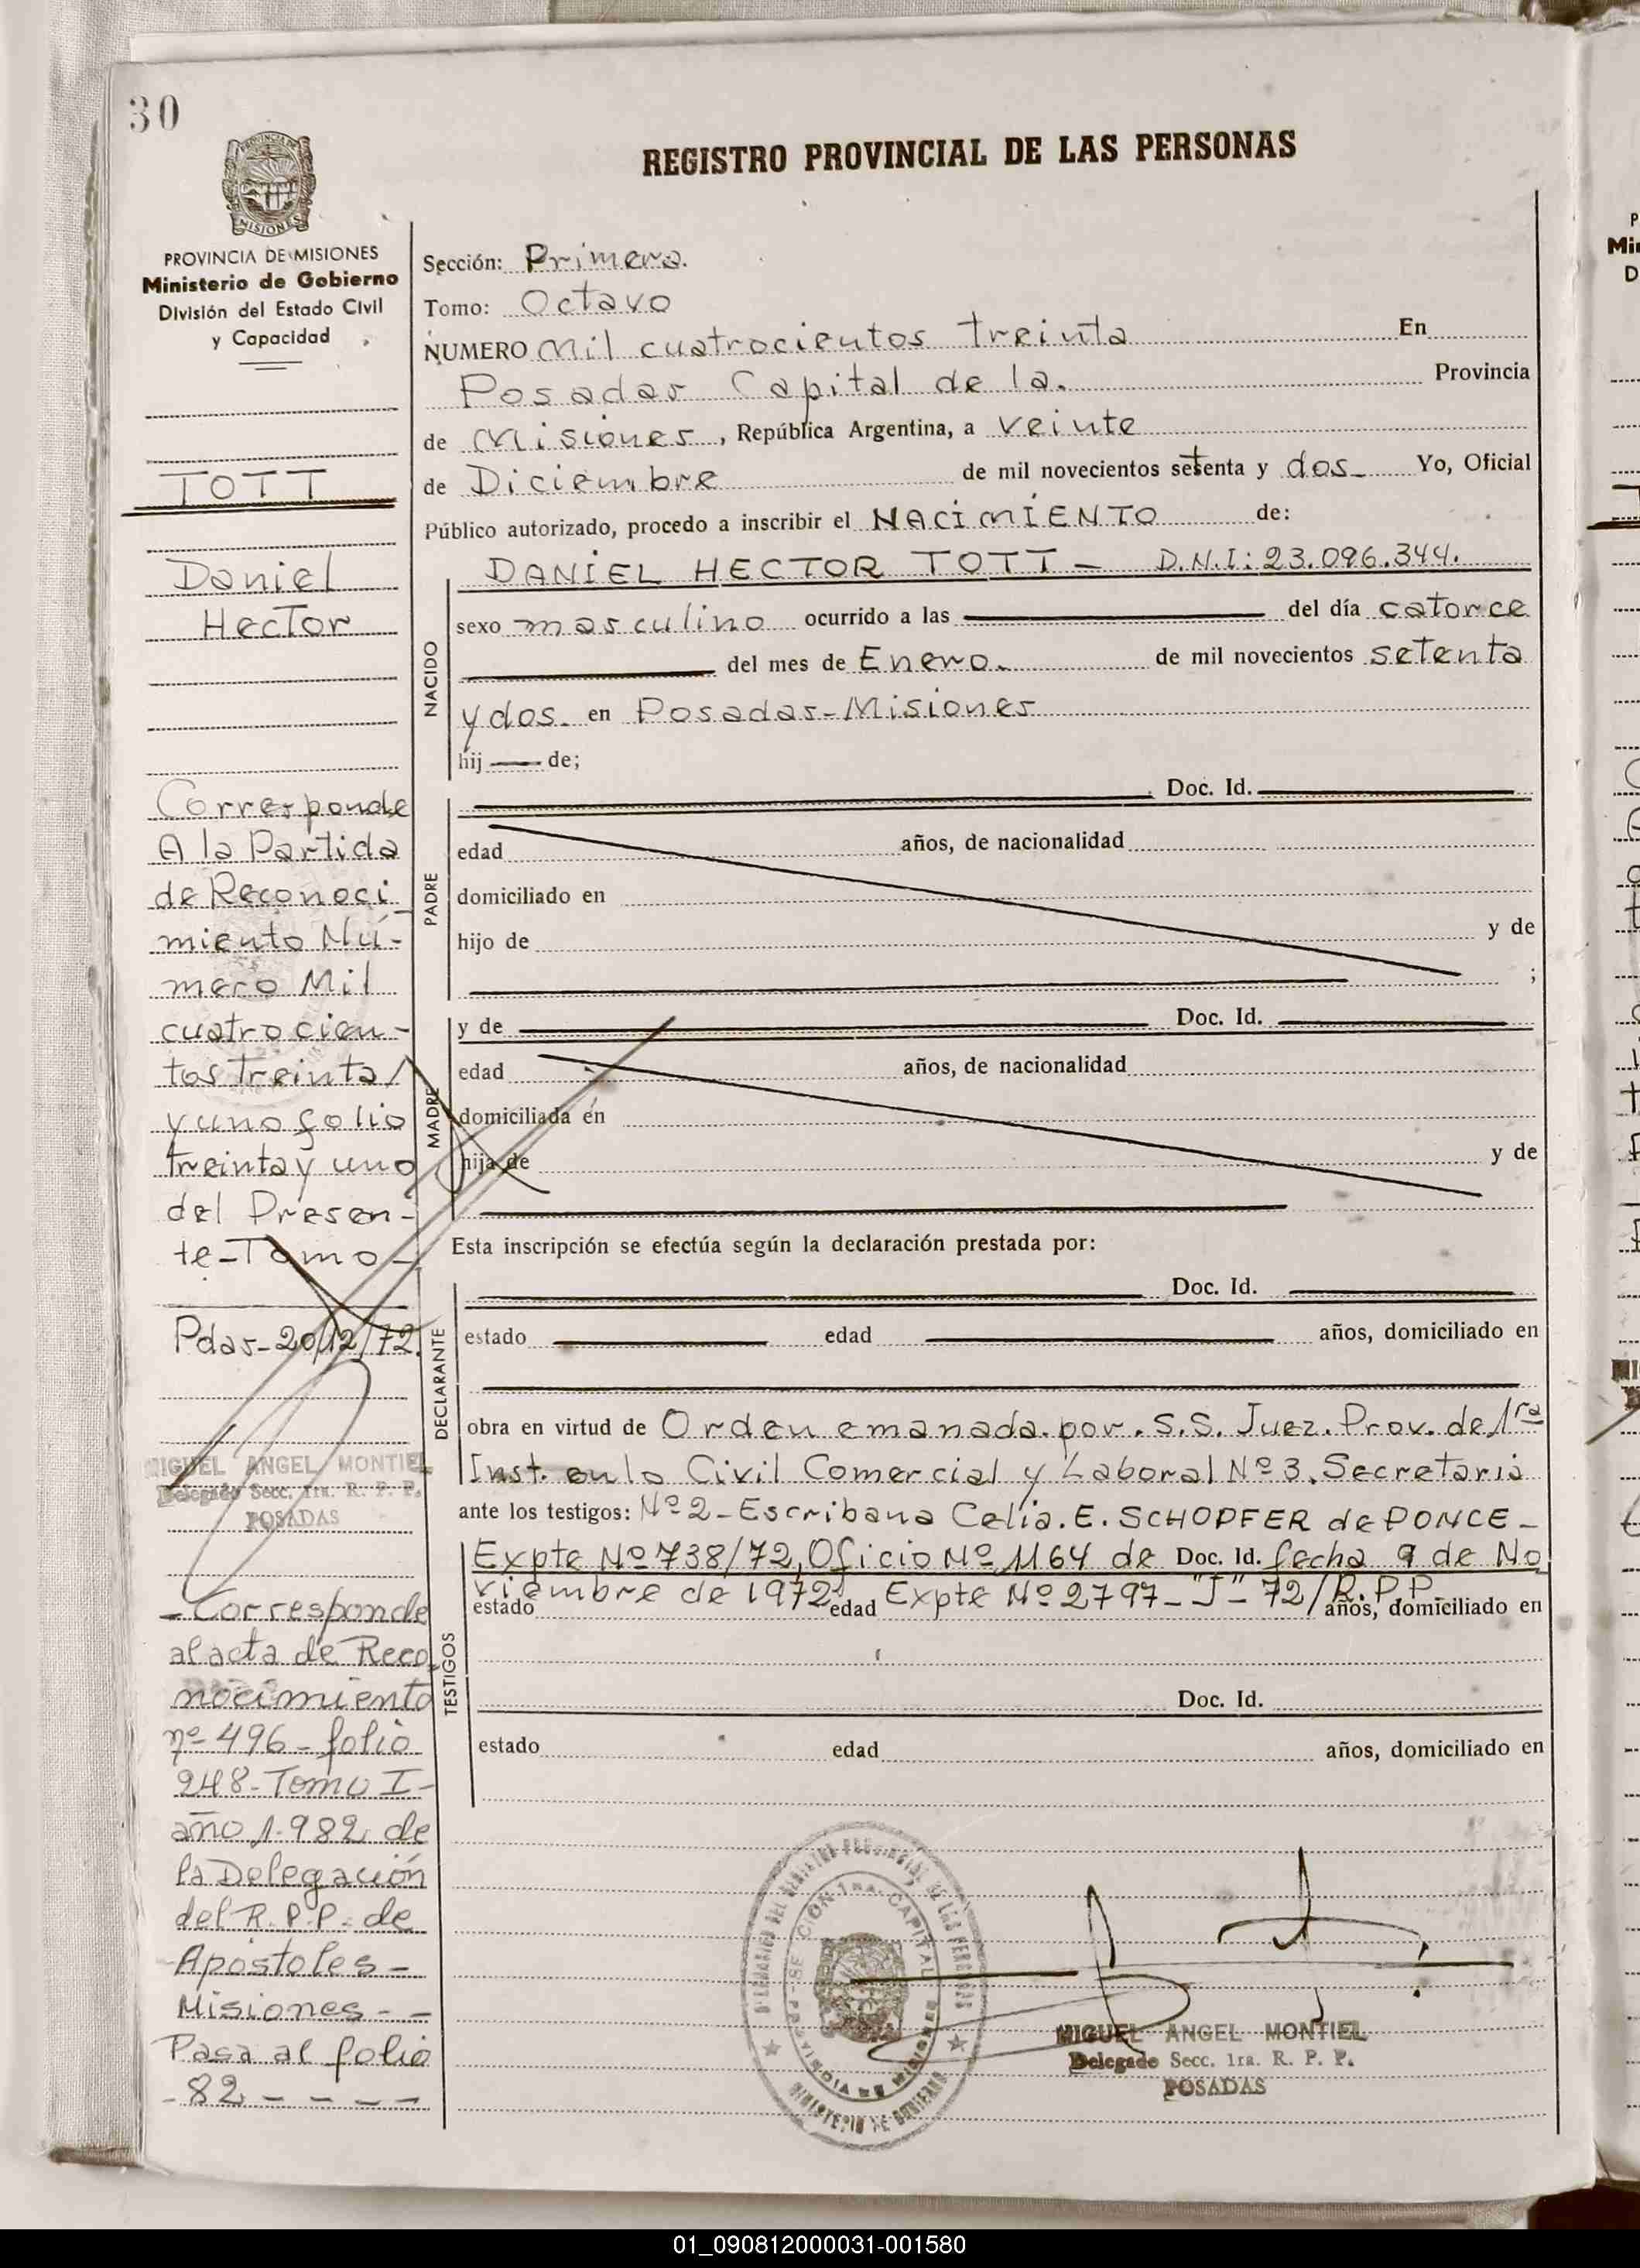 30
REGISTRO PROVINCIAL DE LAS PERSONAS
PROVINCIA DE MISIONES
Ministerio de Gobierno
División del Estado Civil
y Capacidad
TOTT
Daniel
Hector
Corresponde
A la Partida
de Reconoci
miento Nú-
mero Mil
cuatrocien-
tos treinta
y uno folio
treinta y uno
del Presen-
te-Tomo-
Pdas-20/12/72.
MIGUEL ANGEL MONTIEL
Delegado Secc. 1ra. R. P. P.
POSADAS
-Corresponde
al acta de Reco
nocimiento
nº 496- folio
248-Tomo I-
año 1.982 de
la Delegación
del R.P.P. de
Apóstoles-
Misiones--
Pasa al folio
-82----
Sección: Primera.
Tomo: Octavo
NUMERO Mil cuatrocientos treinta En
Posadas Capital de la. Provincia
de Misiones, República Argentina, a veinte
de Diciembre de mil novecientos setenta y dos- Yo, Oficial
Público autorizado, procedo a inscribir el NACIMIENTO de:
DANIEL HECTOR TOTT- D.N.I: 23.096.344.
NACIDO
sexo masculino ocurrido a las del día catorce
del mes de Enero. de mil novecientos setenta
y dos- en Posadas-Misiones
hij de;
Doc. Id.
PADRE
edad años, de nacionalidad
domiciliado en
hijo de y de
;
y de Doc. Id.
MADRE
edad años, de nacionalidad
domiciliada en
hija de y de
Esta inscripción se efectúa según la declaración prestada por:
Doc. Id.
DECLARANTE
estado edad años, domiciliado en
obra en virtud de Orden emanada.por.S.S. Juez.Prov.de 1ra
Inst. en lo Civil Comercial y Laboral Nº3.Secretaria
ante los testigos: Nº2-Escribana Celia.E.SCHOPFER de PONCE-
Expte Nº738/72,Oficio Nº1164 de Doc. Id. fecha 9 de No
viembre de 1972 Expte Nº2797-"J"-72/R.P.P.
TESTIGOS
estado edad años, domiciliado en
Doc. Id.
estado edad años, domiciliado en
SECCION 1ra. CAPITAL
PROVINCIA DE MISIONES
MINISTERIO DE GOBIERNO
MIGUEL ANGEL MONTIEL
Delegado Secc. 1ra. R. P. P.
POSADAS
01_090812000031-001580